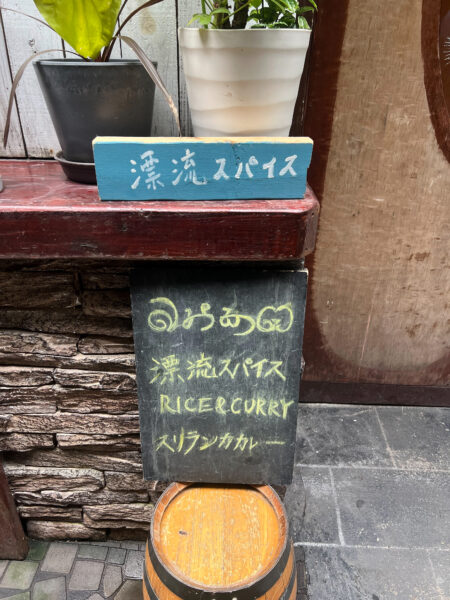 漂流スパイス
漂流スパイス
RICE&CURRY
スリランカカレー